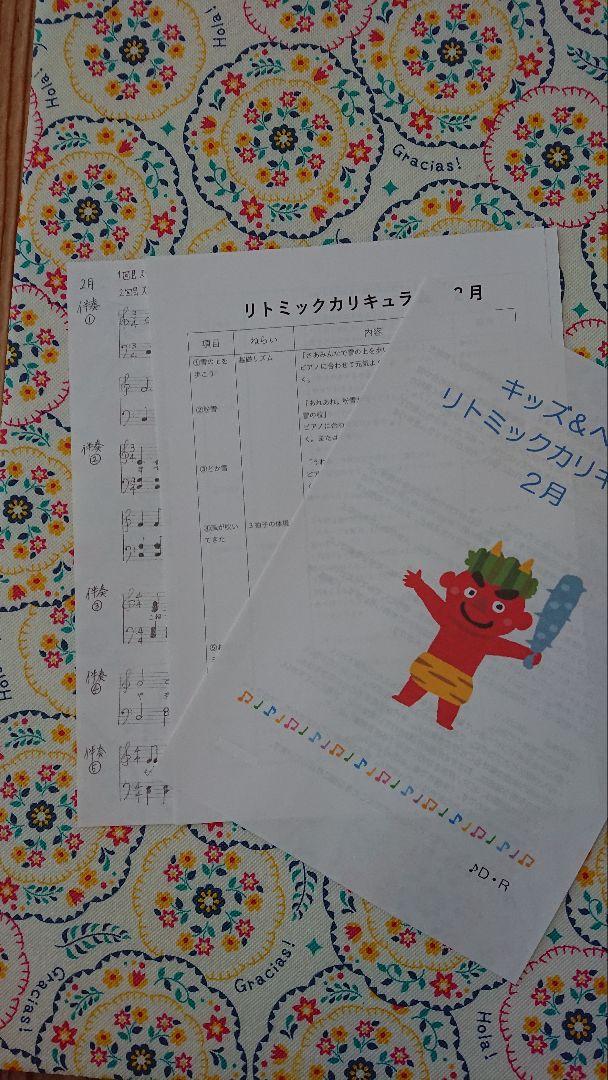 Hola!
Gracias!
Hola!
2月
1回目
2回目
伴奏
①
伴奏
②
伴奏
③
伴奏
④
伴奏
⑤
リトミックカリキュラ 2月
項目 ねらい 内容
①雪の上を
歩こう
基礎リズム
「さあみんなで雪の上を歩い
ピアノに合わせて元気よく
く。
②粉雪
「あれあれ。粉雪
雪の粒」
ピアノに合わ
く。または
③どか雪
「うわ
ピア
④風が吹い
てきた
3拍子の体現
キッズ&ベ
リトミックカリキ
2月
♪D・R
Hola!
Gracias!
Gracias!
Hola!